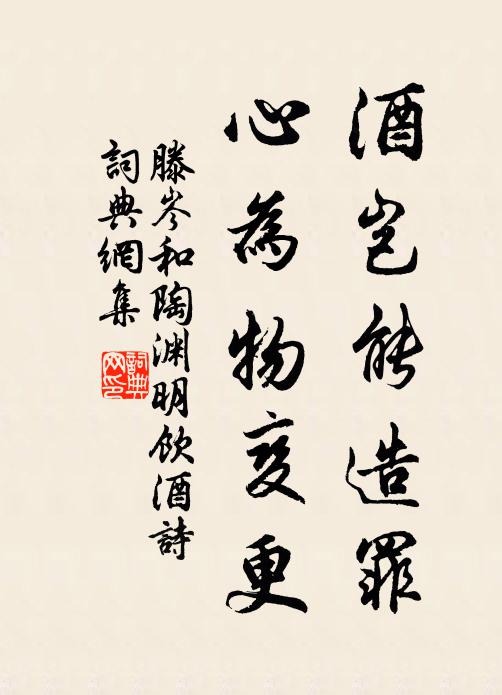 酒岂能造罪
心為物变更
滕岑和陶渊明飲酒詩
詞典網集
詞典
网印